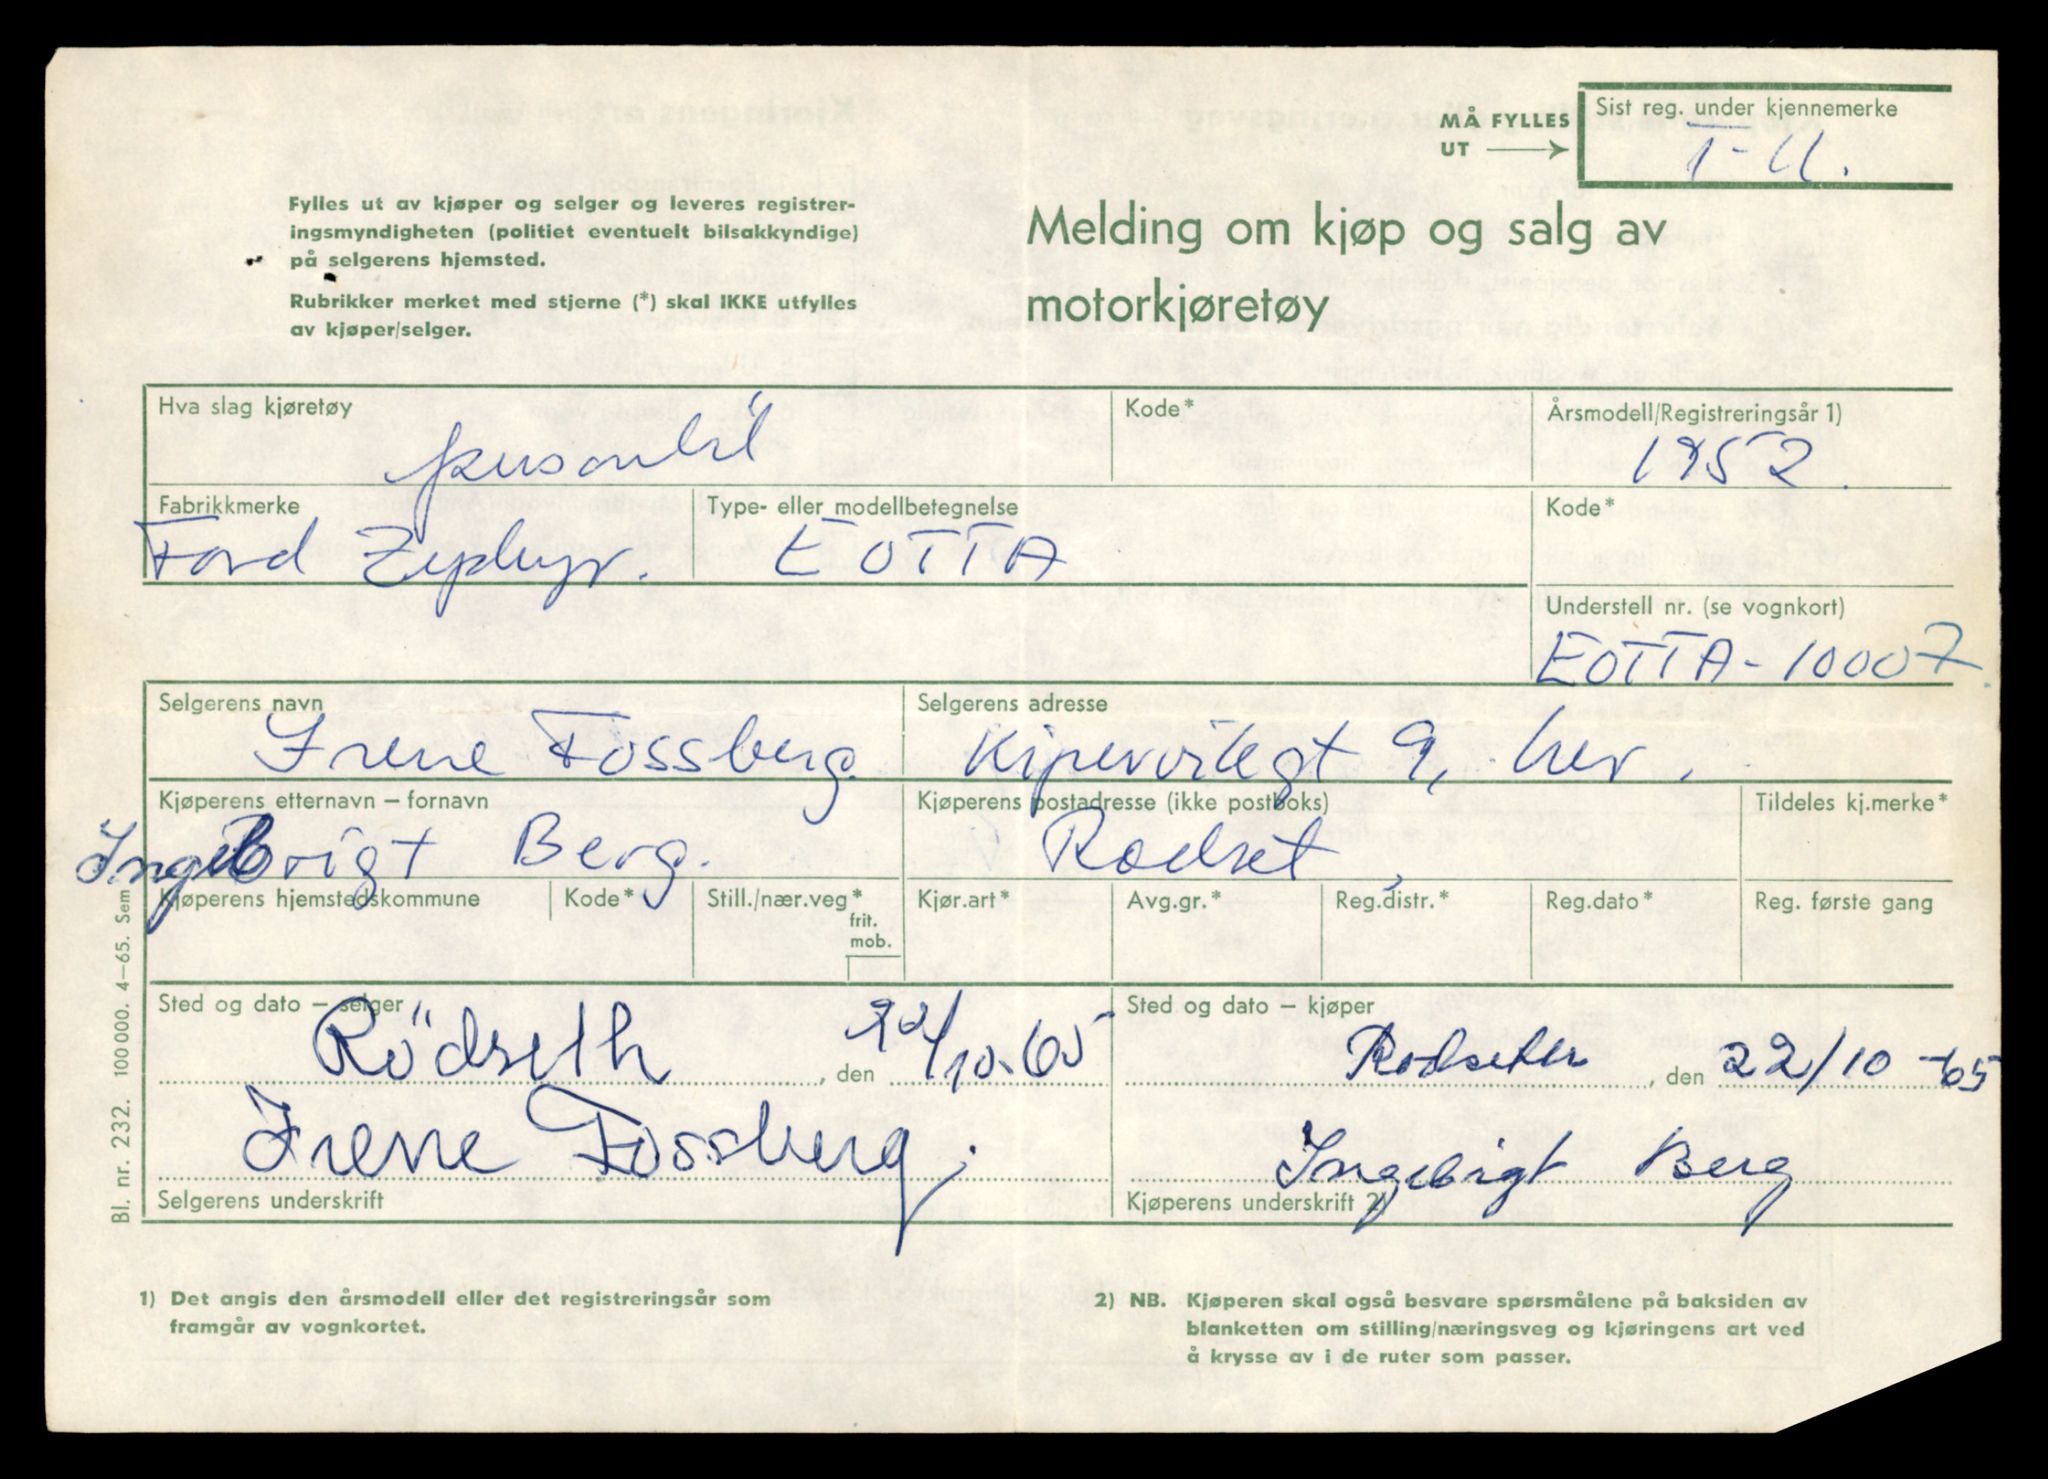 MÅ FYLLES
UT
Sist reg. under kjennemerke
T-11.
Fylles ut av kjøper og selger og leveres registrer-
ingsmyndigheten (politiet eventuelt bilsakkyndige)
på selgerens hjemsted.
Rubrikker merket med stjerne (*) skal IKKE utfylles
av kjøper/selger.
Melding om kjøp og salg av
motorkjøretøy
Hva slag kjøretøy
personbil
Kode*
Årsmodell/Registreringsår 1)
1952.
Fabrikkmerke
Ford Zephyr.
Type- eller modellbetegnelse
EOTTA
Kode*
Understell nr. (se vognkort)
EOTTA-10007
Selgerens navn
Irene Fossberg.
Selgerens adresse
Kipervikgt 9, her.
Kjøperens etternavn – fornavn
Ingebrigt Berg.
Kjøperens postadresse (ikke postboks)
Rødset,
Tildeles kj.merke*
Kjøperens hjemstedskommune
Kode*
Still./nær.veg*
frit.
mob.
Kjør.art*
Avg.gr.*
Reg.distr.*
Reg.dato*
Reg. første gang
Sted og dato – selger
Rödseth, den 22/10-65
Irene Fossberg.
Selgerens underskrift
Sted og dato – kjøper
Rødseth, den 22/10-65
Ingebrigt Berg
Kjøperens underskrift 2)
Bl. nr. 232. 100 000. 4–65. Sem
1) Det angis den årsmodell eller det registreringsår som
framgår av vognkortet.
2) NB. Kjøperen skal også besvare spørsmålene på baksiden av
blanketten om stilling/næringsveg og kjøringens art ved
å krysse av i de ruter som passer.